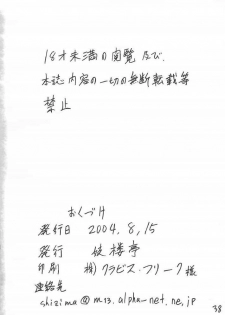 18才未満の閲覧及び、
本誌内容の一切の無断転載等
禁止
おくづけ
発行日 2004.8,15
発行 楼亭
印刷 (株)クラビス・フリーク様
連絡先
shizima@m13.alpha-net.ne.jp
38